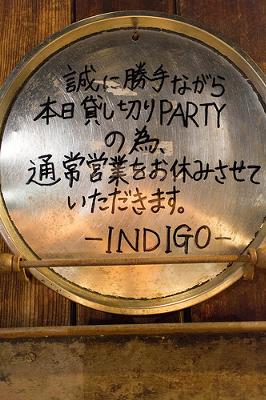 誠に勝手ながら
本日貸し切りPARTY
の為、
通常営業をお休みさせて
いただきます。
-INDIGO-